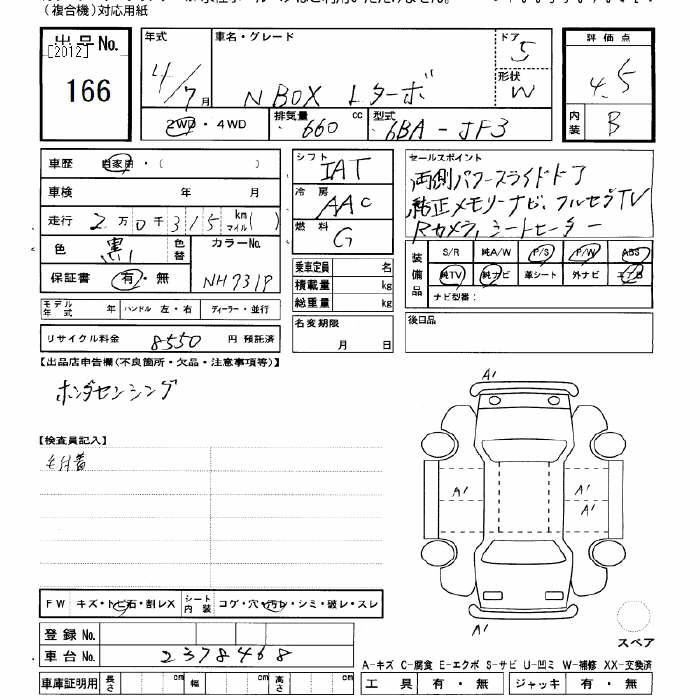 （複合機）対応用紙
出品No.
[2012]
166
年式
4/7月
車名・グレード
N BOX Lターボ
ドア
5
形状
W
評価点
4.5
内装
B
2WD・4WD
排気量
660 cc
型式
6BA-JF3
車歴 自家用・（ ）
車検 年 月
走行 2万0千315 km マイル( )
色 黒 色替
カラーNo.
NH731P
保証書 有・無
モデル年式 年 ハンドル 左・右 ディーラー・並行
リサイクル料金 8550 円 預託済
シフト
IAT
冷房
AAC
燃料
G
乗車定員 名
積載量 kg
総重量 kg
名変期限
月 日
セールスポイント
両側パワースライドドア
純正メモリーナビ、フルセグTV
Rカメラ、シートヒーター
装備品
S/R 純A/W P/S P/W ABS
純TV 純ナビ 革シート 外ナビ エアB
ナビ型番：
後日品
【出品店申告欄(不良箇所・欠品・注意事項等)】
ホンダセンシング
【検査員記入】
毛付着
A'
A'
A'
A'
A'
スペア
FW キズ・トビ石・割レX シート内装 コゲ・穴・汚レ・シミ・破レ・スレ
登録No.
車台No. 2378468
A-キズ C-腐食 E-エクボ S-サビ U-凹ミ W-補修 XX-交換済
車庫証明用 長さ cm 幅 cm 高さ cm
工具 有・無 ジャッキ 有・無